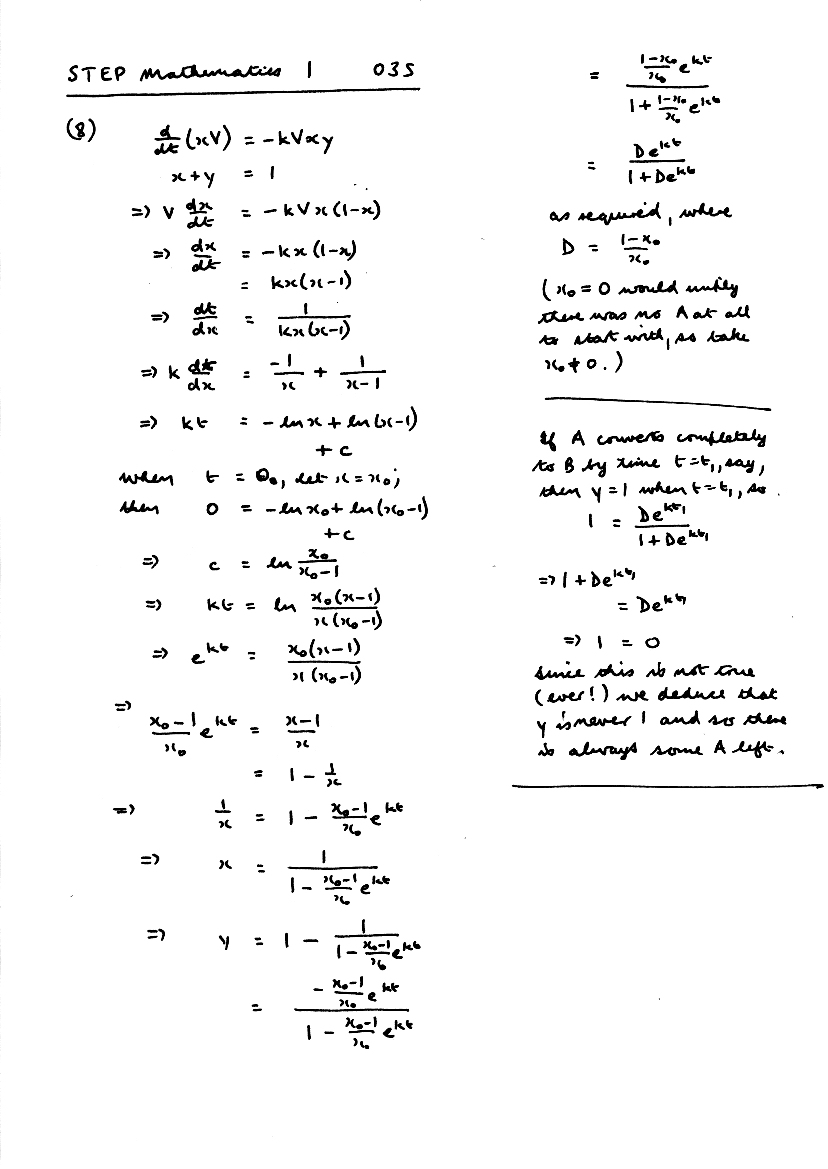 STEP Mathematics 1 035
(8) d/dt (xV) = -kVxy
x+y = 1
=> V dx/dt = -kVx(1-x)
=> dx/dt = -kx(1-x)
= kx(x-1)
=> dt/dx = 1/(kx(x-1))
=> k dt/dx = -1/x + 1/(x-1)
=> kt = -ln x + ln(x-1)
+ c
when t = 0, let x = x₀;
then 0 = -ln x₀ + ln(x₀-1)
+c
=> c = ln x₀/(x₀-1)
=> kt = ln x₀(x-1)/(x(x₀-1))
=> e^kt = x₀(x-1)/(x(x₀-1))
=>
(x₀-1)/x₀ e^kt = (x-1)/x
= 1 - 1/x
=> 1/x = 1 - (x₀-1)/x₀ e^kt
=> x = 1/(1 - (x₀-1)/x₀ e^kt)
=> y = 1 - 1/(1 - (x₀-1)/x₀ e^kt)
= (-(x₀-1)/x₀ e^kt)/(1 - (x₀-1)/x₀ e^kt)
= ((1-x₀)/x₀ e^kt)/(1 + (1-x₀)/x₀ e^kt)
= De^kt/(1+De^kt)
as required, where
D = (1-x₀)/x₀
(x₀ = 0 would imply
there was no A at all
to start with, so take
x₀ ≠ 0.)
If A converts completely
to B by time t=t₁, say,
then y=1 when t=t₁, so
1 = De^kt₁/(1+De^kt₁)
=> 1+De^kt₁
= De^kt₁
=> 1 = 0
Since this is not true
(ever!) we deduce that
y is never 1 and so there
is always some A left.